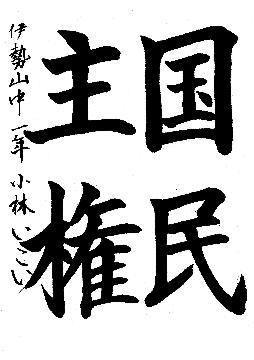 国民
主権
伊勢山中一年 小林いこい